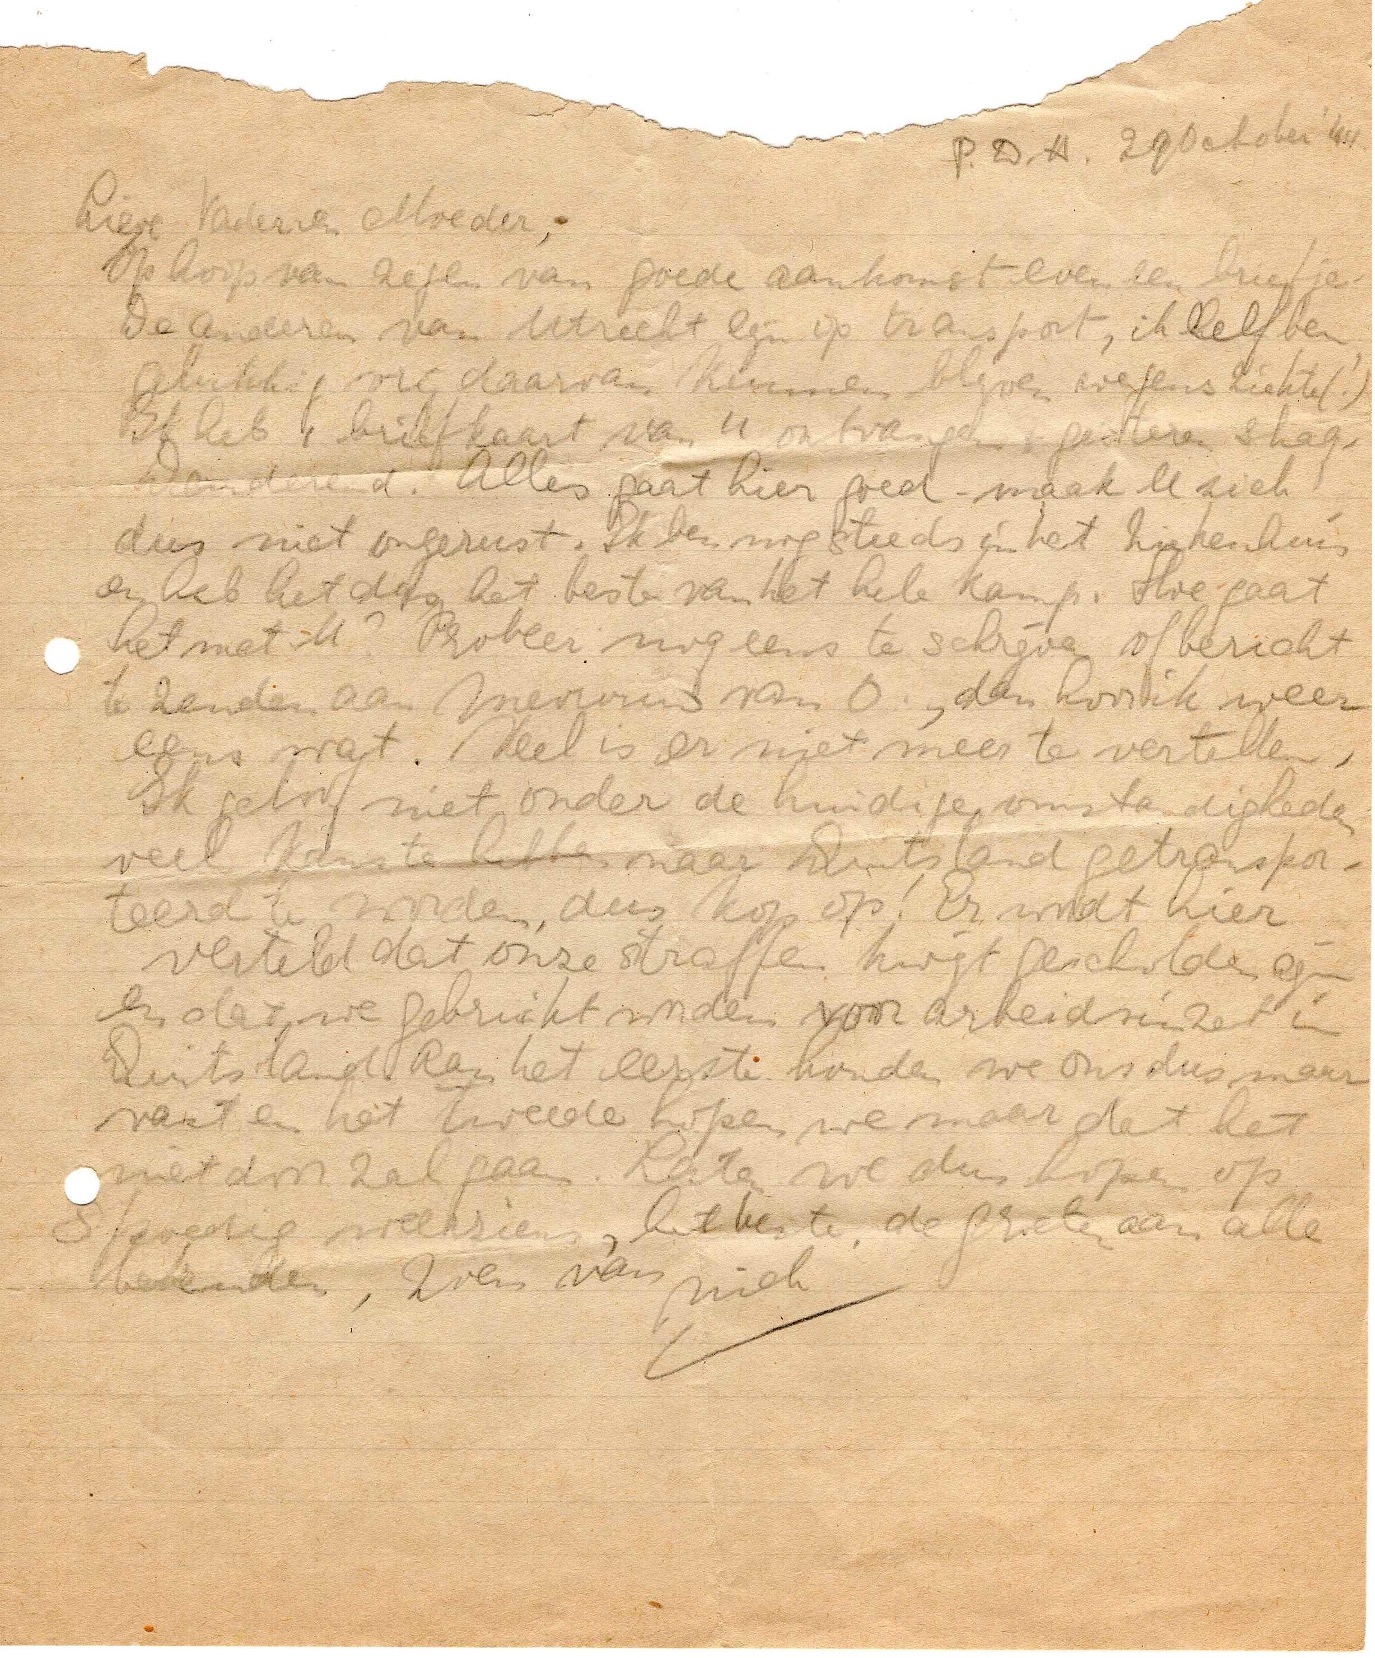 P.D.A. 29 October '44
Lieve Vader en Moeder,
Op hoop van zegen van goede aankomst even een briefje.
De anderen van Utrecht zijn op transport, ik zelf ben
gelukkig vrij daarvan kunnen blijven wegens ziekte(!)
Ik heb 1 briefkaart van U ontvangen, gisteren shag.
Donderend. Alles gaat hier goed - maak U zich
dus niet ongerust. Ik ben nog steeds in het ziekenhuis
en heb het dus het beste van het hele kamp. Hoe gaat
het met U? Probeer nog eens te schrijven of bericht
te zenden aan Mevrouw van O., dan hoor ik weer
eens wat. Veel is er niet meer te vertellen,
Ik geloof niet onder de huidige omstandigheden
veel kans te hebben naar Duitsland getranspor-
teerd te worden, dus kop op! Er wordt hier
verteld dat onze straffen kwijt gescholden zijn
en dat we gebruikt worden voor arbeidsinzet in
Duitsland. Aan het eerste houden we ons dus maar
vast en het tweede hopen we maar dat het
niet door zal gaan. Laten we dus hopen op
spoedig weerziens, het beste, de groeten aan alle
bekenden, zoen van